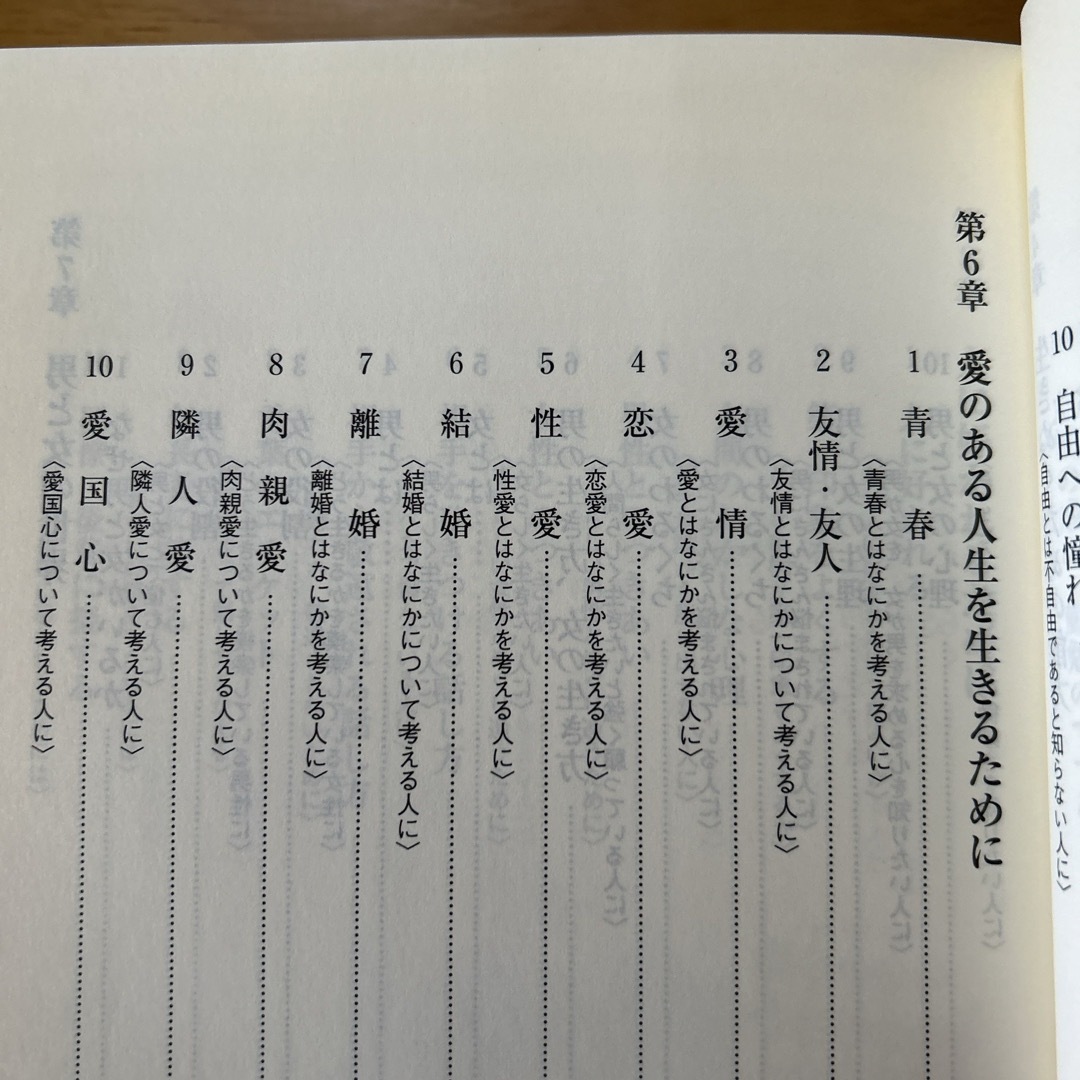 10 自由への憧れ
〈自由とは不自由であると知らない人に〉
第6章 愛のある人生を生きるために
1 青春
〈青春とはなにかを考える人に〉
2 友情・友人
〈友情とはなにかについて考える人に〉
3 愛情
〈愛とはなにかを考える人に〉
4 恋愛
〈恋愛とはなにかを考える人に〉
5 性愛
〈性愛とはなにかを考える人に〉
6 結婚
〈結婚とはなにかについて考える人に〉
7 離婚
〈離婚とはなにかを考える人に〉
8 肉親愛
〈肉親愛について考える人に〉
9 隣人愛
〈隣人愛について考える人に〉
10 愛国心
〈愛国心について考える人に〉